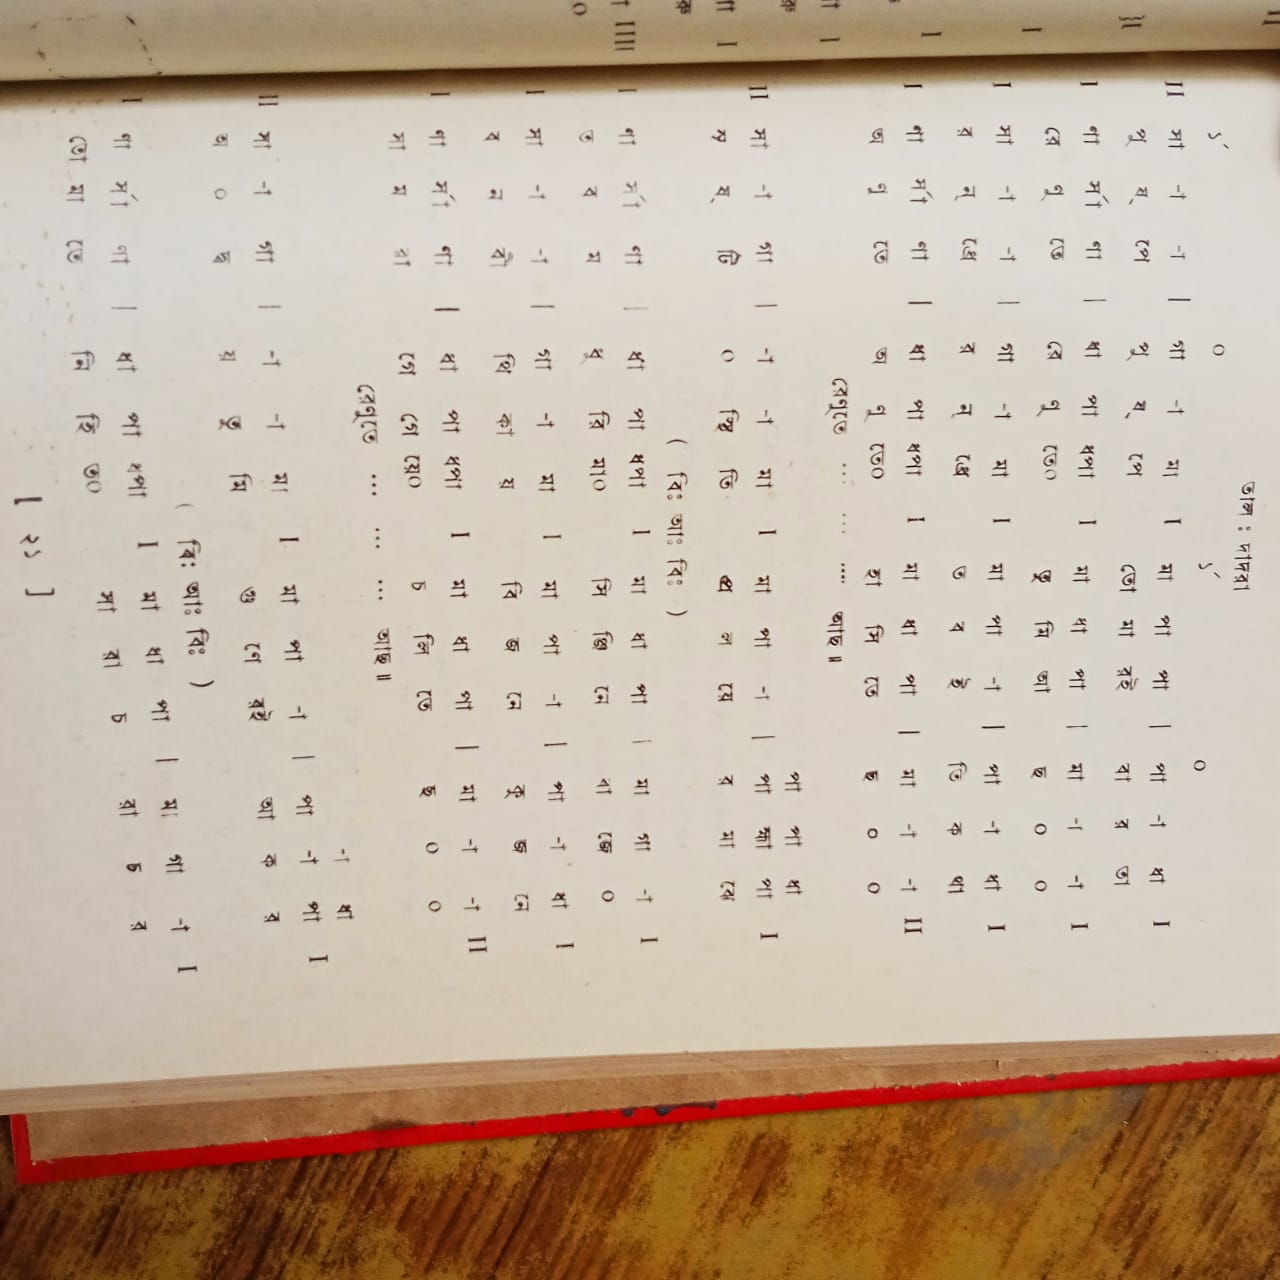 তাল : দাদরা
১´ ০ ১´ ০
II মা -া -া | গা -া মা I মা পা পা | পা -া ধা I
পূ র্ ণে পূ র্ ণে তো মা রই বা র তা
I ণা র্সা ণা | ধা পা ধপা I মা ধা পা | মা -া -া I
রে ণু তে রে ণু তে০ তু মি আ ছ ০ ০
I মা -া -া | গা -া মা I মা পা -া | পা -া ধা I
র ন্ ধ্রে র ন্ ধ্রে ত ব ই তি ক থা
I ণা র্সা ণা | ধা পা ধপা I মা ধা পা | মা -া -া II
অ ণু তে অ ণু তে০ হা সি তে ছ ০ ০
রেণুতে ... ... .... আছ॥
পা পা ধা
II মা -া গা | -া -া মা I মা পা -া | পা ক্ষা পা I
স্থি তি র মা ঝে
( বিঃ আঃ বিঃ )
I ণা র্সা ণা | ধা পা ধপা I মা ধা পা | মা গা -া I
ত ব ম ধু রি মা০ মি ছি নে বা জে ০
I মা -া -া | গা -া মা I মা পা -া | পা -া ধা I
ব ন বী থি কা য় বি জ নে কূ জ নে
I ণা র্সা ণা | ধা পা ধপা I মা ধা পা | মা -া -া II
সা ম রা গে গে য়ে০ চ লি তে ছ ০ ০
রেণুতে ... ... ... আছ॥
-া ধা
II সা -া গা | -া -া মা I মা পা -া | পা -া পা I
অ ০ ছ য় তু মি গু ণে রই আ ক র
( বিঃ আঃ বিঃ )
I ণা র্সা ণা | ধা পা ধপা I মা ধা পা | মা গা -া I
তো মা তে নি হি ত০ সা রা চ রা চ র
[ ২১ ]